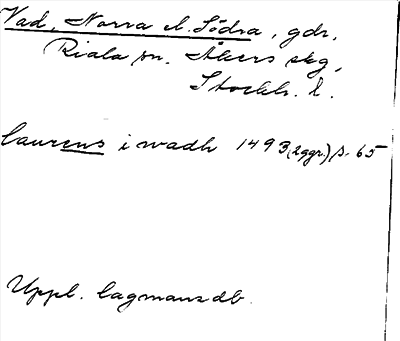 Vad, Norra el. Södra, gdr,
Riala sn. Åkers skg,
Stockh. l.
laurens i wadh 1493 (2ggr.) s. 65
Uppl. lagmansdb.